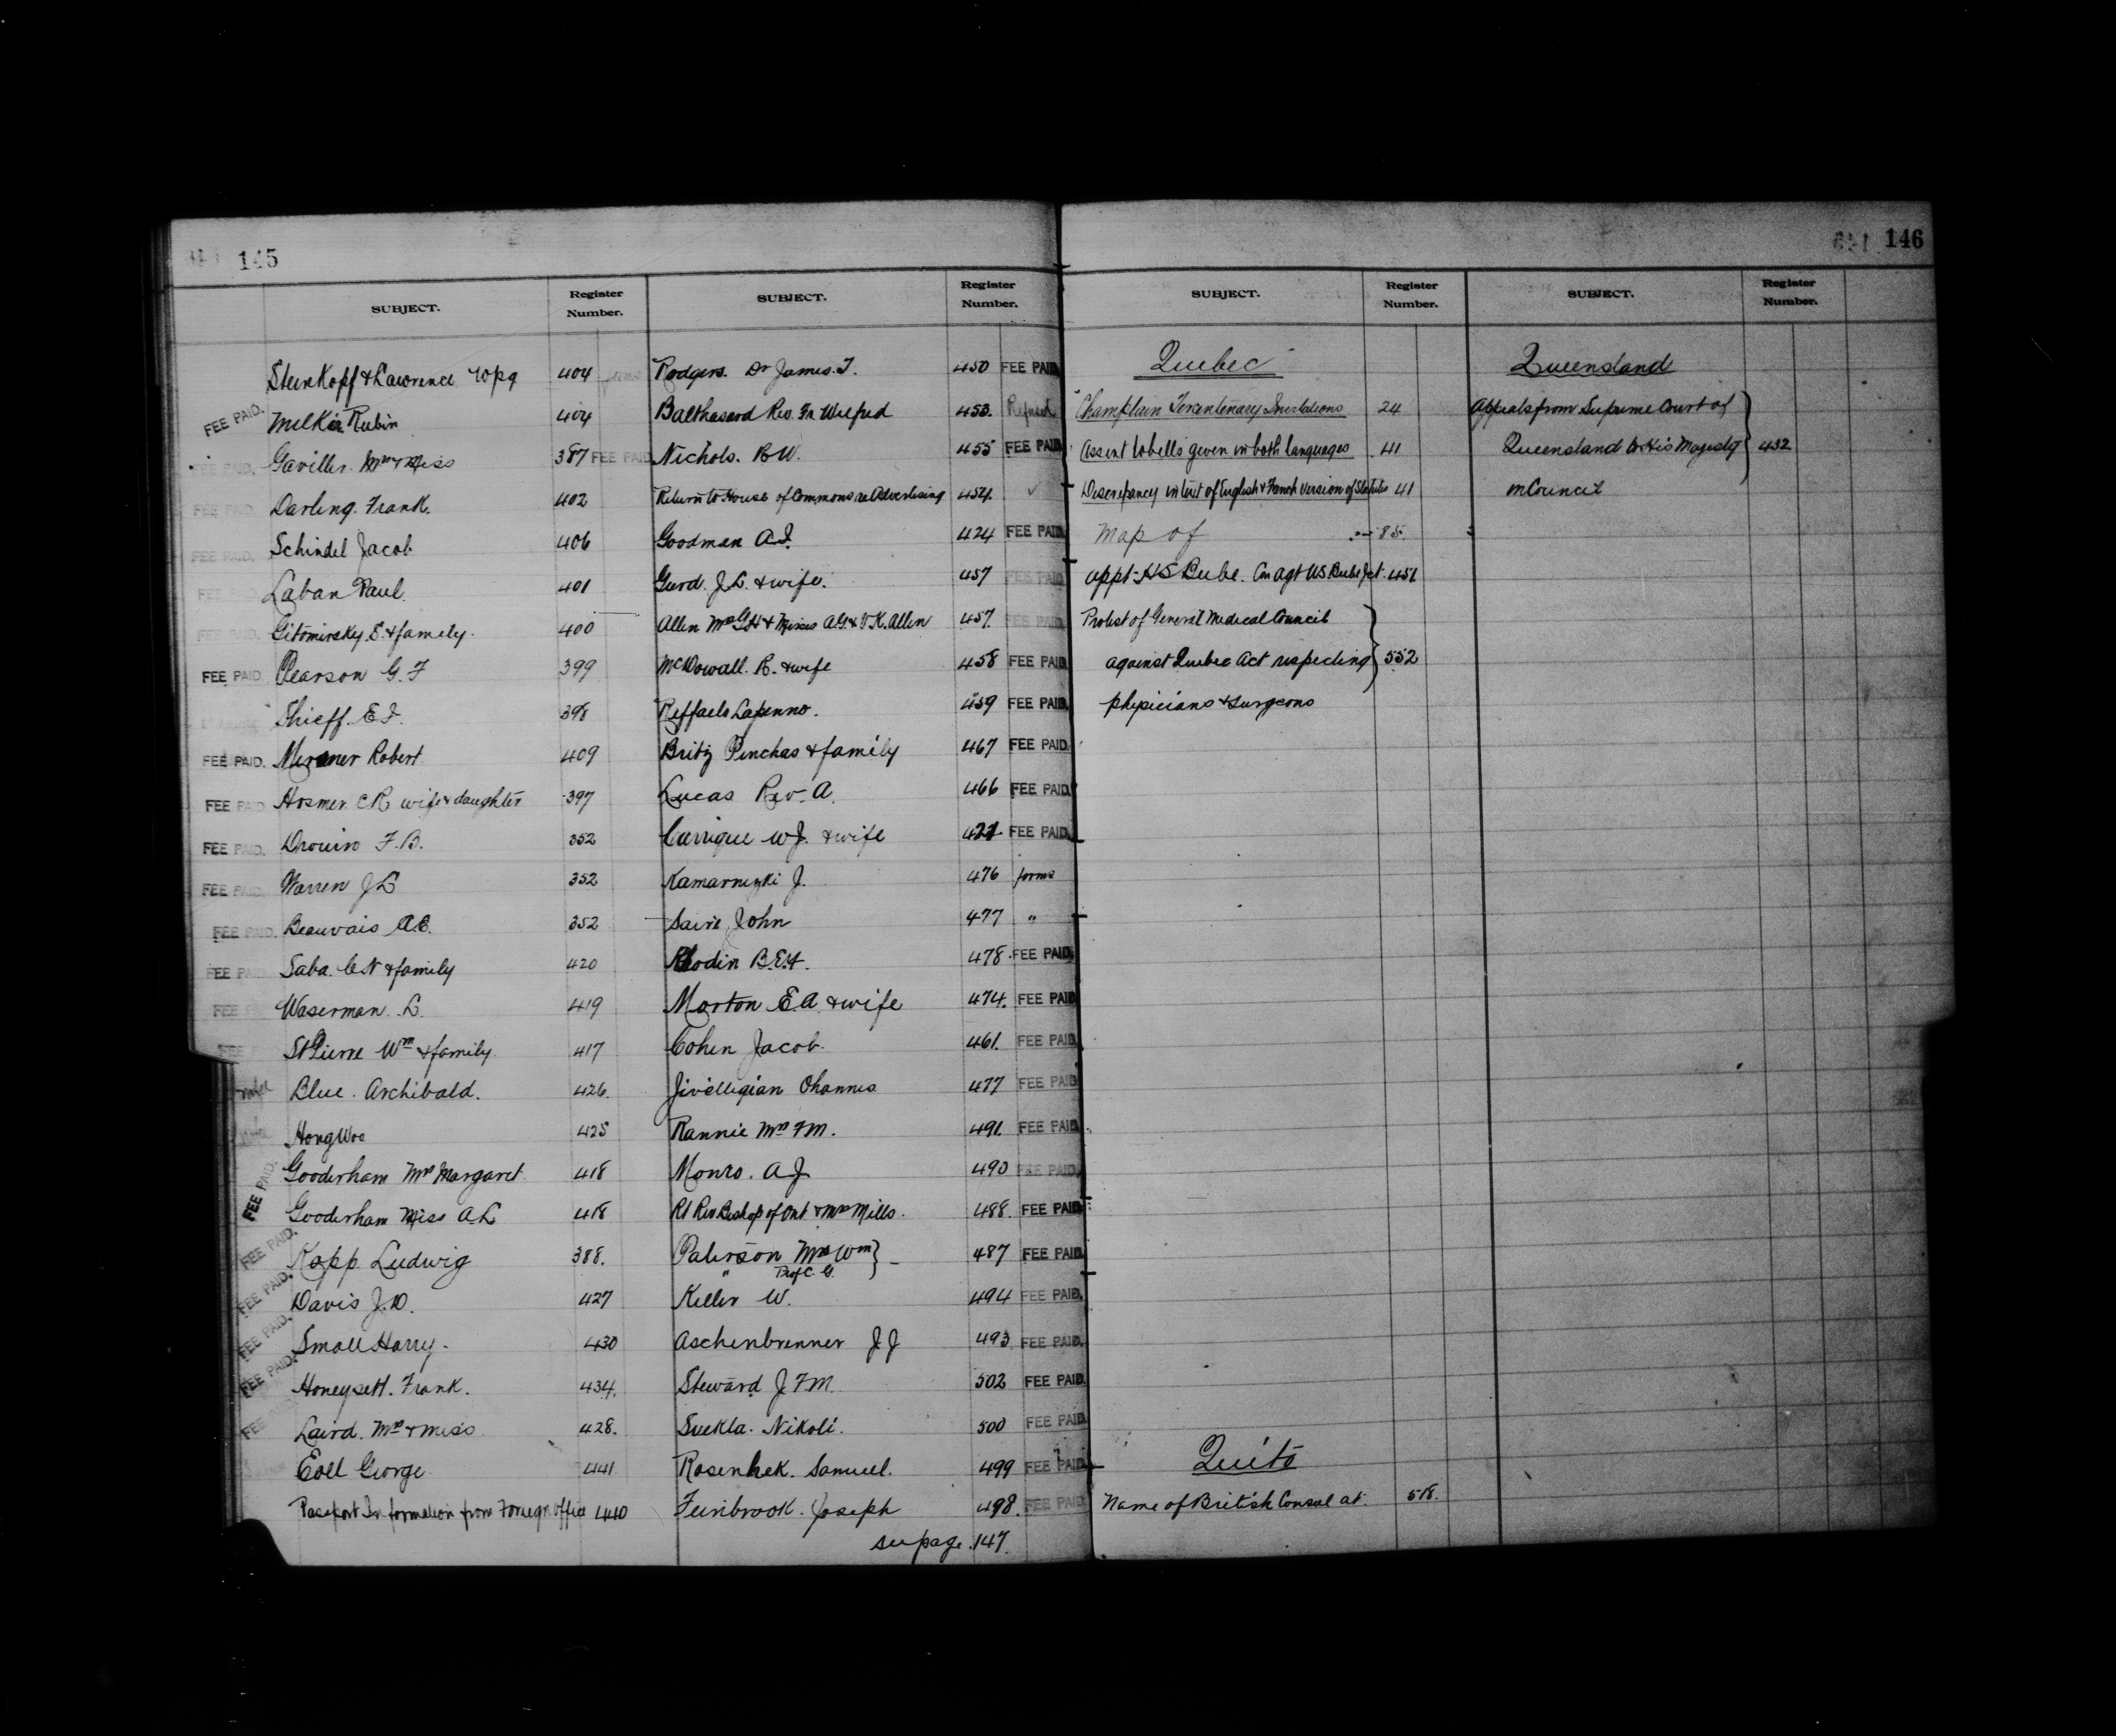 145
SUBJECT. Register Number.
Steinkopf & Lawrence Wpg 404
FEE PAID. Rubin 404
FEE PAID. Gaviller. Mrs & Miss 387 FEE PAID
FEE PAID. Darling. Frank. 402
FEE PAID. Schindel Jacob 406
FEE PAID. Laban Paul. 401
FEE PAID. Gitomirsky. S. & family. 400
FEE PAID Pearson G. F 399
Shieff. E. I. 398
FEE PAID. Robert 409
FEE PAID Hosmer C R wife & daughter 397
FEE PAID. Drouin F. B. 352
FEE PAID. Warren J L 352
FEE PAID. Beauvais A E. 352
FEE PAID Saba. C N & family 420
FEE PAID Waserman. L. 419
FEE P St Pierre Wm & family. 417
Blue. Archibald. 426.
Hong Woo 425
FEE PAID. Gooderham Mrs Margaret. 418
Gooderham Miss A L 418
FEE PAID. Kopp Ludwig 388.
FEE PAID. Davis J. D. 427
FEE PAID. Small Harry. 430
FEE PAID. Honeysett. Frank. 434.
FEE PAID Laird. Mrs & Miss 428.
Eoll George 441
Passport Information from Foreign Office 440
SUBJECT. Register Number.
Rodgers. Dr James. T. 450 FEE PAID.
Balthasard Rev. Fr Wilfred 453. Refused
Nichols. R W. 455 FEE PAID.
Return to House of Commons re Advertising 454. ✓
Goodman A. I. 424 FEE PAID.
Gurd. J L. & wife. 457 FEE PAID.
Allen Mrs G H & Misses A G. & V. K. Allen 457. FEE PAID.
McDowall. R. & wife 458 FEE PAID.
Reffaelo Lapenno. 459 FEE PAID.
Britz Pinchas & family 467 FEE PAID.
Lucas Rev. A. 466 FEE PAID.
Carrique W J. & wife 421. FEE PAID.
J. 476 forms
John 477 "
Rhodin B. E. H. 478. FEE PAID.
Morton E. A. & wife 474. FEE PAID
Cohen Jacob. 461. FEE PAID
Jivelegian Ohannes 477 FEE PAID
Rannie Mrs F M. 491. FEE PAID.
Monro. A J 490 FEE PAID.
Rt Rev Bishop of Ont & Mrs Mills. 488. FEE PAID
Paterson Mrs Wm } 487 FEE PAID.
" Prof C. G.
Keller W. 494 FEE PAID.
Aschenbrenner J J 493 FEE PAID.
Steward J F M. 502 FEE PAID.
Suekla. Nikoli. 500 FEE PAID.
Rosenhek. Samuel. 499 FEE PAID.
Feinbrook. Joseph 498. FEE PAID.
see page 147.
146
SUBJECT. Register Number.
Quebec
Champlain Tercentenary Invitations 24
Assent to bills given in both languages 41
Discrepancy in text of English & French version of Statutes 41
Map of 85.
Appt H S Beebe. Con Agt US Beebe Jct. 451
Protest of General Medical Council
against Quebec Act respecting } 552
physicians & surgeons
Quito
Name of British Consul at. 518.
SUBJECT. Register Number.
Queensland
Appeals from Supreme Court of
Queensland to His Majesty } 432
in Council